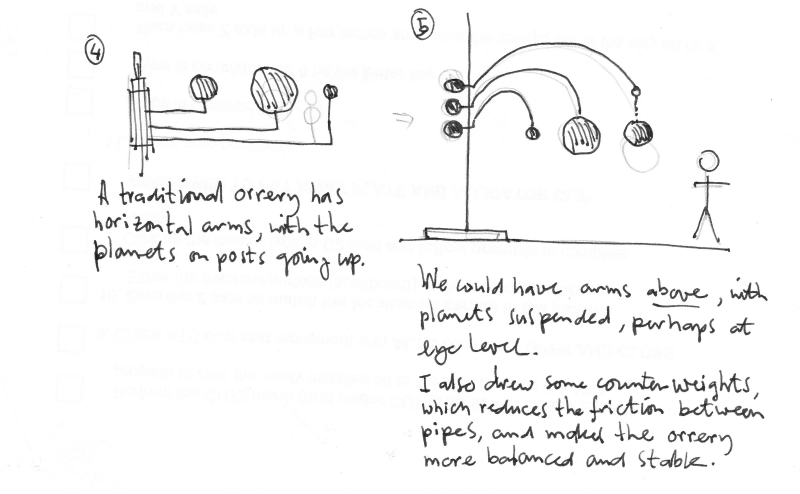 4
A traditional orrery has
horizontal arms, with the
planets on posts going up.
5
We could have arms above, with
planets suspended, perhaps at
eye level.
I also drew some counterweights,
which reduces the friction between
pipes, and makes the orrery
more balanced and stable.